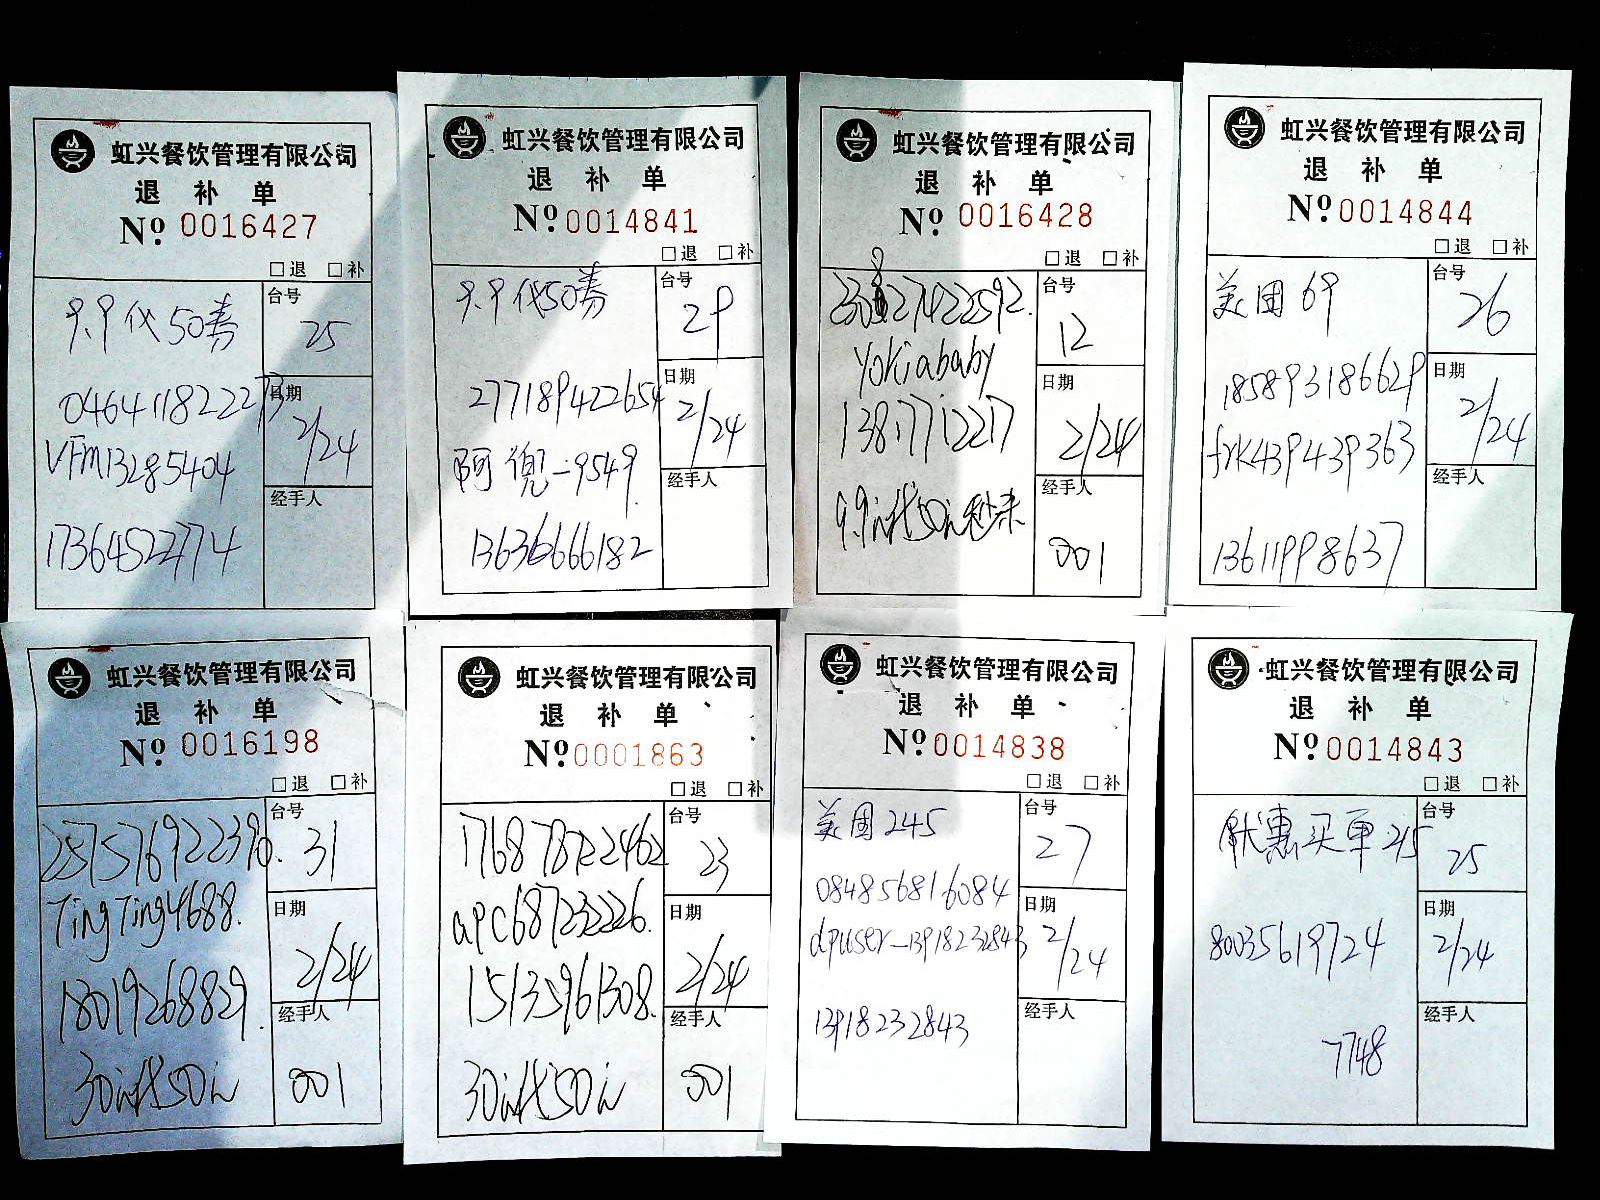 虹兴餐饮管理有限公司
退 补 单
Nº 0016427
□退 □补
台号
25
日期
2/24
经手人
9.9代50券
046411822273
VFM13285404
17364522774
虹兴餐饮管理有限公司
退 补 单
Nº 0014841
□退 □补
台号
29
日期
2/24
经手人
9.9代50券
277189422654
阿兜-9549
13636666182
虹兴餐饮管理有限公司
退 补 单
Nº 0016428
□退 □补
台号
12
日期
2/24
经手人
001
yokiababy
13817712217
9.9元代50元秒杀
虹兴餐饮管理有限公司
退 补 单
Nº 0014844
□退 □补
台号
26
日期
2/24
经手人
美团69
185893186629
frk439439363
13611998637
虹兴餐饮管理有限公司
退 补 单
Nº 0016198
□退 □补
台号
31
日期
2/24
经手人
001
257576922390.
TingTing4688.
18019268829.
30元代50元
虹兴餐饮管理有限公司
退 补 单
Nº 0001863
□退 □补
台号
23
日期
2/24
经手人
001
apC687232226.
15135961308.
30元代50元
虹兴餐饮管理有限公司
退 补 单
Nº 0014838
□退 □补
台号
27
日期
2/24
经手人
美团245
084856816084
dpuser-13918232843
13918232843
虹兴餐饮管理有限公司
退 补 单
Nº 0014843
□退 □补
台号
25
日期
2/24
经手人
优惠买单215
80035619724
7748